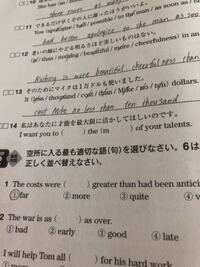 She has (
there were as many
□11 できるだけ早くその人に謝ったほうがいいよ.
You (apologize / had / possible / to the man / as soon as /
had better apologize to the man as soo
□12 老いの顔にやどる明るさほど美しいものはない.
than / nothing / beautiful / more / cheerfulness) in an
Nothing is more beautiful cheerfulness than
□13 そのためにマイクは1万ドルも使いました.
It (ten / thousand / cost / than / Mike / no / less) dollars.
cost Mike no less than ten thousand
□14 私はあなたに才能を最大限に活かしてほしいのです.
I want you to ( ) the (m ) of your talents.
空所に入る最も適切な語(句)を選びなさい。6は
正しく並べ替えなさい。
1 The costs were ( ) greater than had been antici
①far ②more ③quite ④v
2 The war is as ( ) as over.
①bad ②early ③good ④late
I will help Tom all ( ) for his hard work